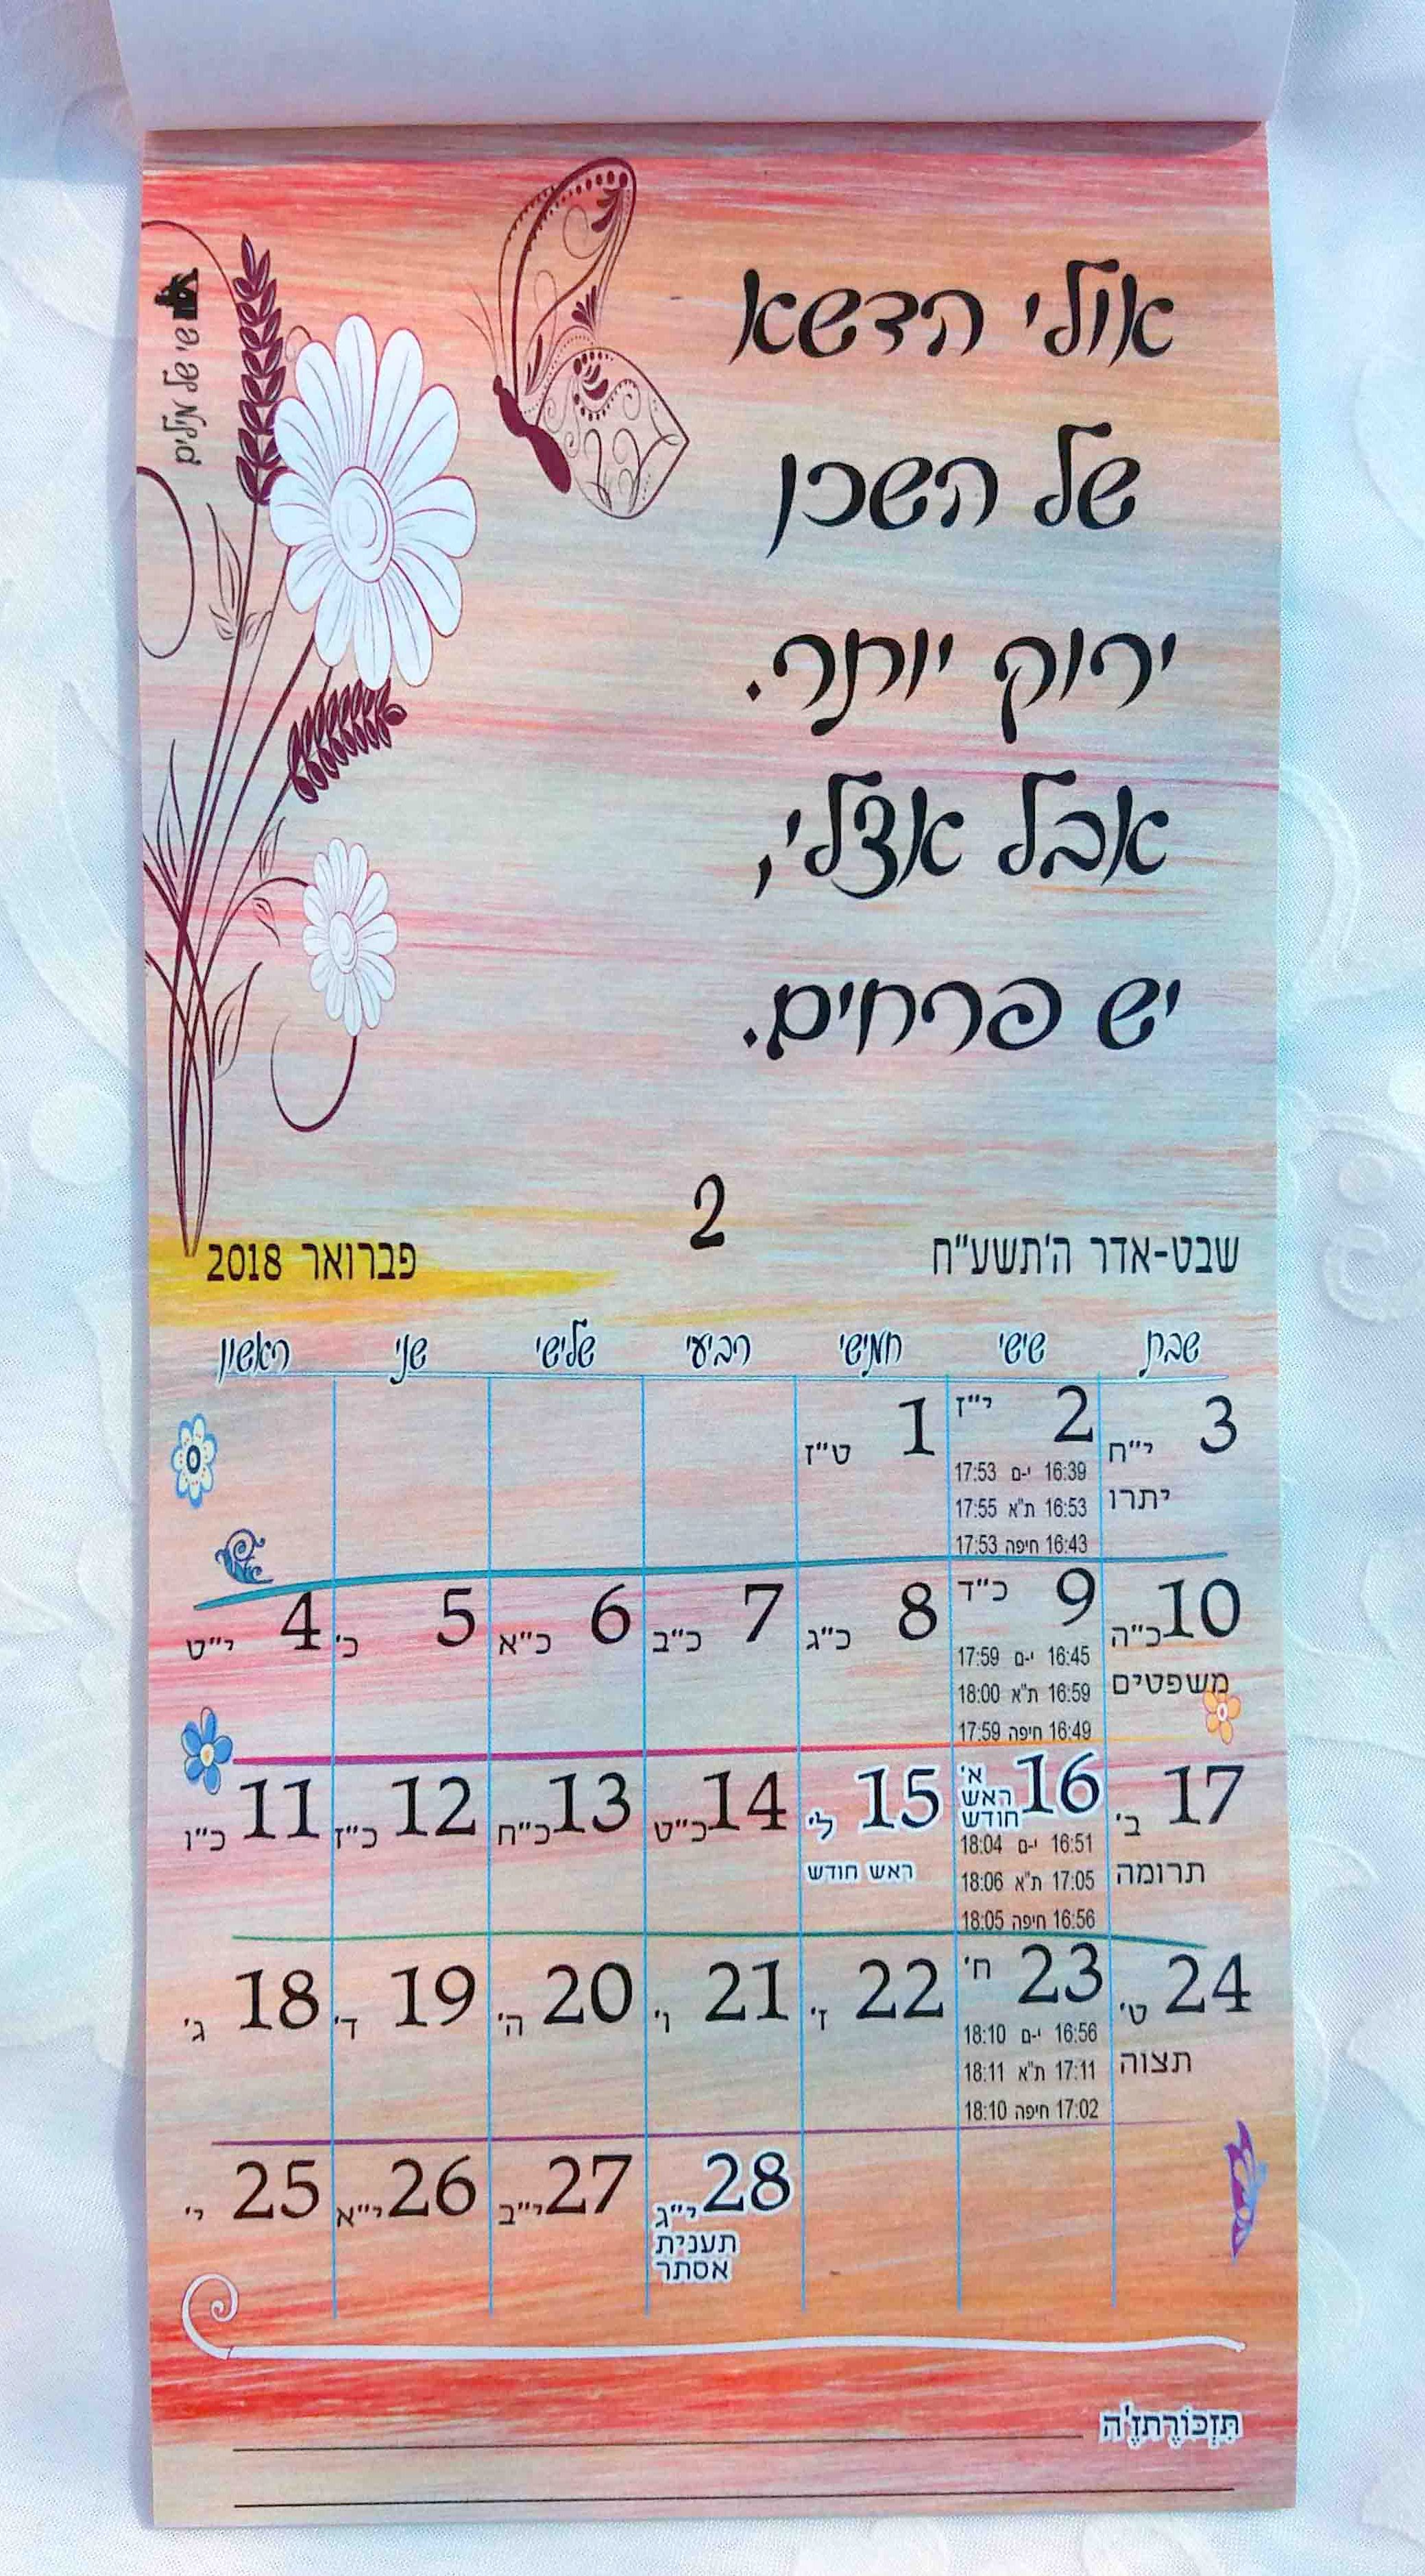 אולי הדשא
של השכן
ירוק יותר.
אבל אצלי,
יש פרחים.
שי של מילים
2
שבט-אדר ה'תשע"ח
פברואר 2018
ראשון שני שלישי רביעי חמישי שישי שבת
1 ט"ז
2 י"ז
16:39 י-ם 17:53
16:53 ת"א 17:55
16:43 חיפה 17:53
3 י"ח
יתרו
4 י"ט
5 כ'
6 כ"א
7 כ"ב
8 כ"ג
9 כ"ד
16:45 י-ם 17:59
16:59 ת"א 18:00
16:49 חיפה 17:59
10 כ"ה
משפטים
11 כ"ו
12 כ"ז
13 כ"ח
14 כ"ט
15 ל'
ראש חודש
16 א'
ראש
חודש
16:51 י-ם 18:04
17:05 ת"א 18:06
16:56 חיפה 18:05
17 ב'
תרומה
18 ג'
19 ד'
20 ה'
21 ו'
22 ז'
23 ח'
16:56 י-ם 18:10
17:11 ת"א 18:11
17:02 חיפה 18:10
24 ט'
תצוה
25 י'
26 י"א
27 י"ב
28 י"ג
תענית
אסתר
תִּזְכּוֹרֶתזֶ'ה